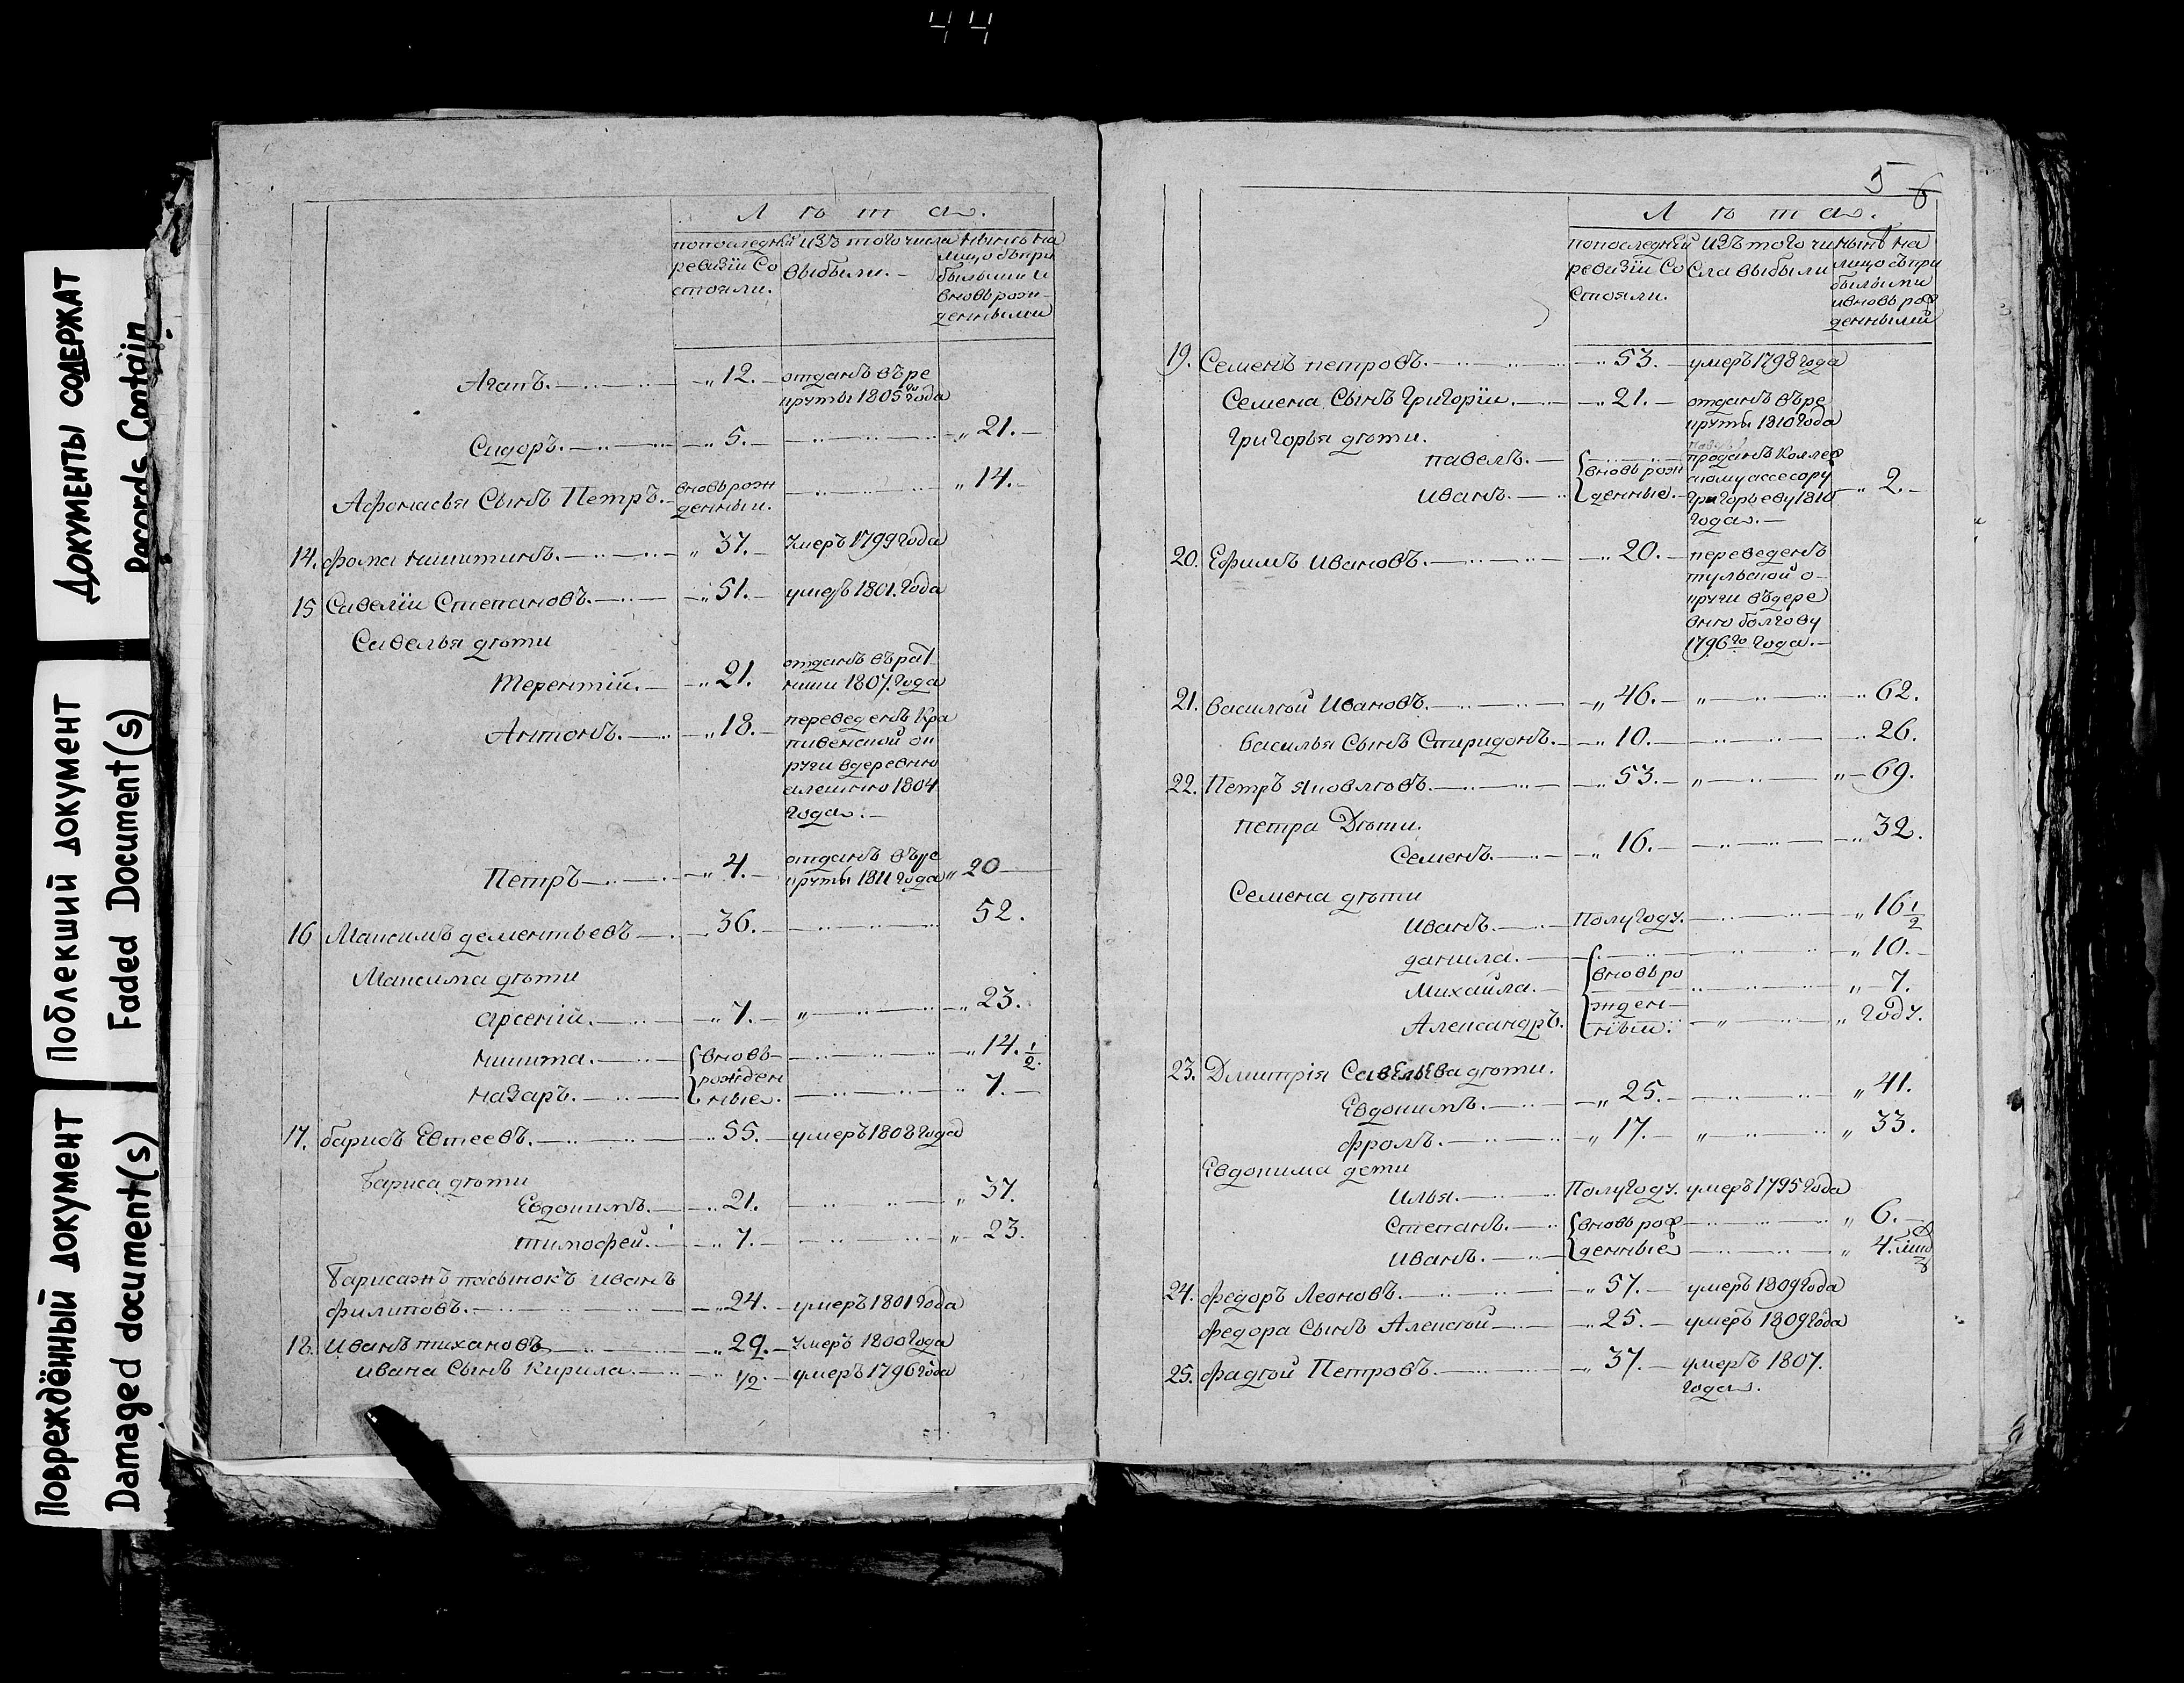 44
Документы содержат
Records Contain
Поблекший документ
Faded Document(s)
Повреждённый документ
Damaged document(s)
Лѣта.
попоследнѣй ревизіи Состояли.
изъ того числа выбыли.
нынѣ на лицо съ прибылыми и вновь рожденными
Агапъ. 12. отданъ въ рекруты 1805го года
Сидоръ. 5. 21.
Афонасья Сынъ Петръ. вновь рожденныи. 14.
14. фома никитинъ. 37. Умеръ 1799 года
15 Савелiи Степановъ. 51. умеръ 1801. года
Савелья дѣти
терентiй. 21. отданъ въ ратники 1807. года
Антонъ. 18. переведенъ Крапивенской округи вдеревню алешню 1804 года.
Петръ 4. отданъ въ рекруты 1811 года 20
16 Максимъ дементьевъ 36. 52.
Максима дѣти
арсенiй. 7. 23.
никита. вновь рожденные. 14. 1/2.
назаръ. 7.
17. барисъ Евтеевъ. 55. умеръ 1808 года
бариса дѣти
Евдокимъ. 21. 37.
тимофей. 7. 23.
барисавъ пасынокъ иванъ
филиповъ. 24. умеръ 1801 года
18. Иванъ тихановъ 29. Умеръ 1800 года
ивана Сынъ Кирила. 1/2. умеръ 1796 года
5 6
Лѣта.
попоследнѣй ревизіи Состояли.
изъ того числа выбыли
нынѣ на лицо съ прибылыми ивновь рожденными
19. Семенъ петровъ. 53. умеръ 1798 года
Семена Сынъ григорiи. 21. отданъ въ рекруты 1810 года
григорья дѣти.
павелъ. вновь рожденные. проданъ коллежскому ассесору григорьеву 1810 года.
иванъ. 2.
20. Ефимъ Ивановъ. 20. переведенъ тульской округи въдеревню болгову 1796го года.
21. василѣй Ивановъ. 46. 62.
василья Сынъ Спиридонъ. 10. 26.
22. Петръ яковлѣвъ. 53. 69.
петра Дѣти.
Семенъ. 16. 32.
Семена дѣти
иванъ. Полугоду. 16 1/2
данила. вновь рожденнiыи. 10.
Михайла. 7.
Александръ. году.
23. Дмитрiя Савельева дѣти.
Евдокимъ. 25. 41.
фролъ. 17. 33.
Евдокима дети
илья. Полугоду. умеръ 1795 года
степанъ. вновь рожденные 6.
иванъ. 4.
24. федоръ Леоновъ. 57. умеръ 1809 года
федора Сынъ Алексѣй 25. умеръ 1809 года
25. фадѣй Петровъ. 37. умеръ 1807. года.